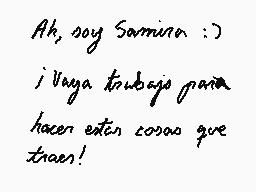 Ah, soy Samira :)
¡Vaya trabajo para
hacer estas cosas que
traes!